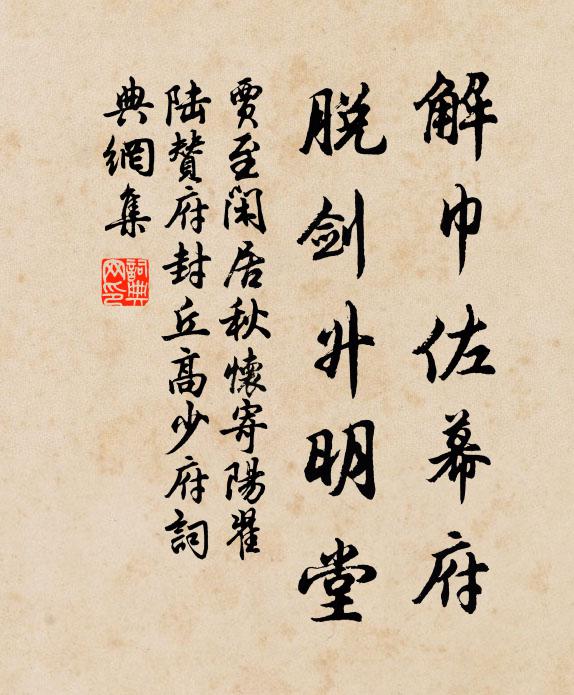 解巾佐幕府
脱剑升明堂
贾至闲居秋怀寄阳翟
陆赞府封丘高少府词
典網集
詞典網印